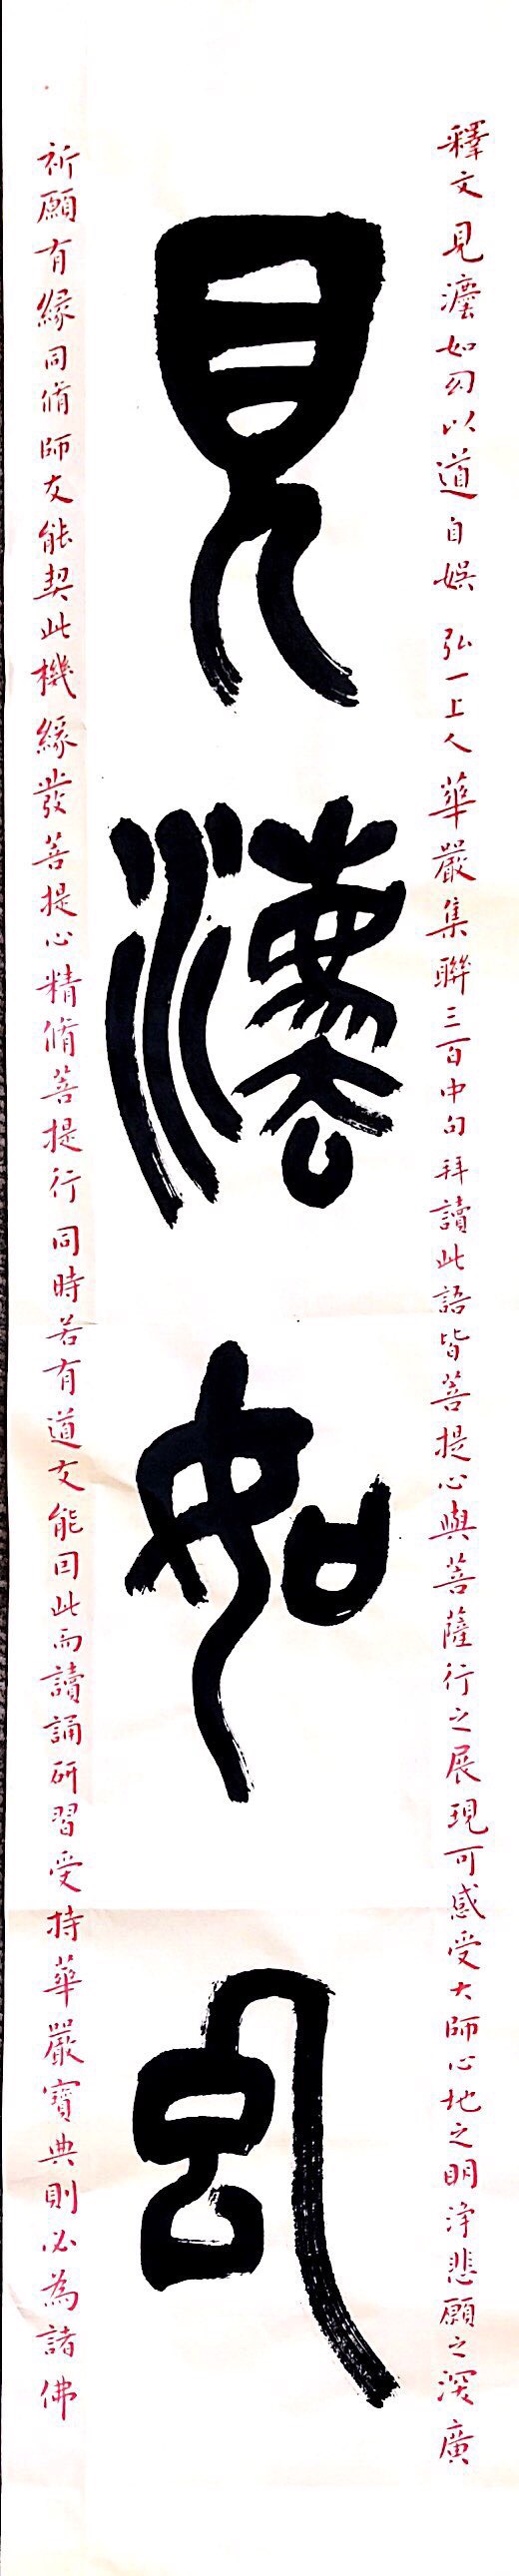 釋文見灋如幻以道自娛 弘一上人華嚴集聯三百中句拜讀此語皆菩提心與菩薩行之展現可感受大師心地之明淨悲願之深廣
見灋如幻
祈願有緣同脩師友能契此機緣發菩提心精脩菩提行同時若有道友能因此而讀誦研習受持華嚴寶典則必為諸佛